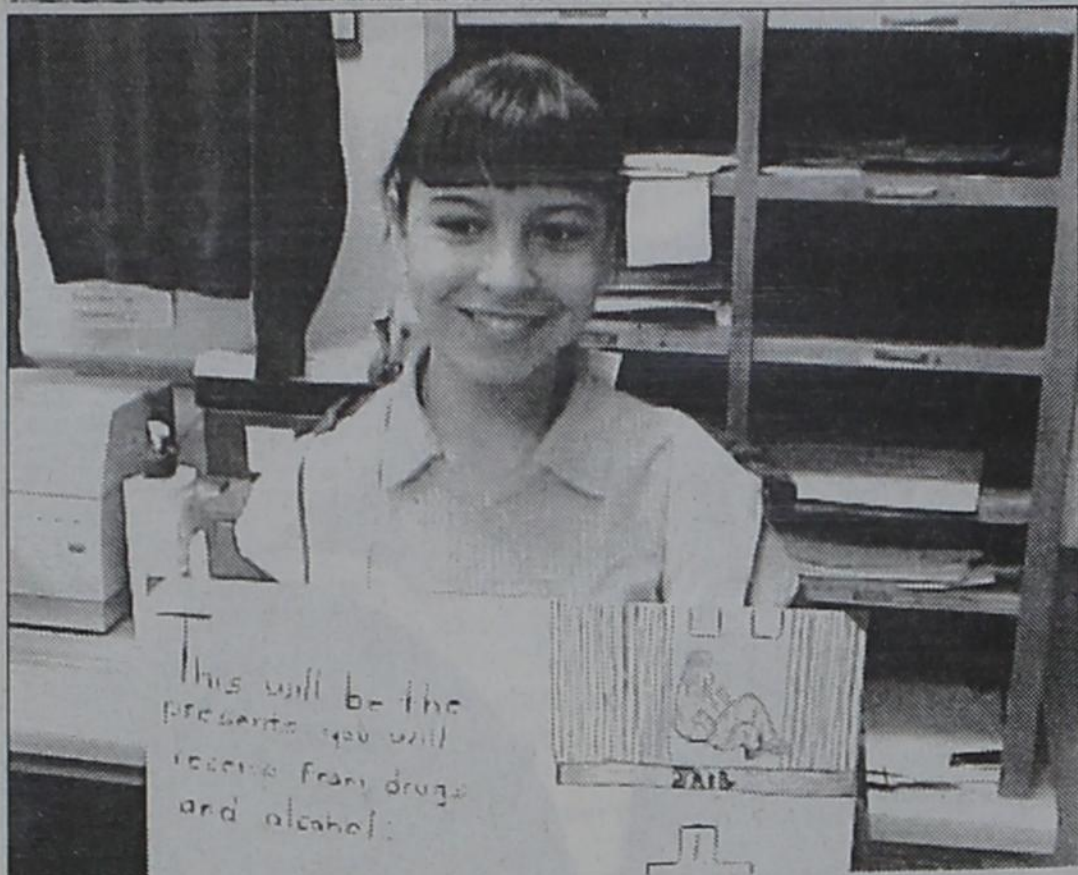 This will be the
presents you will
receive from drugs
and alcohol:
JAIL